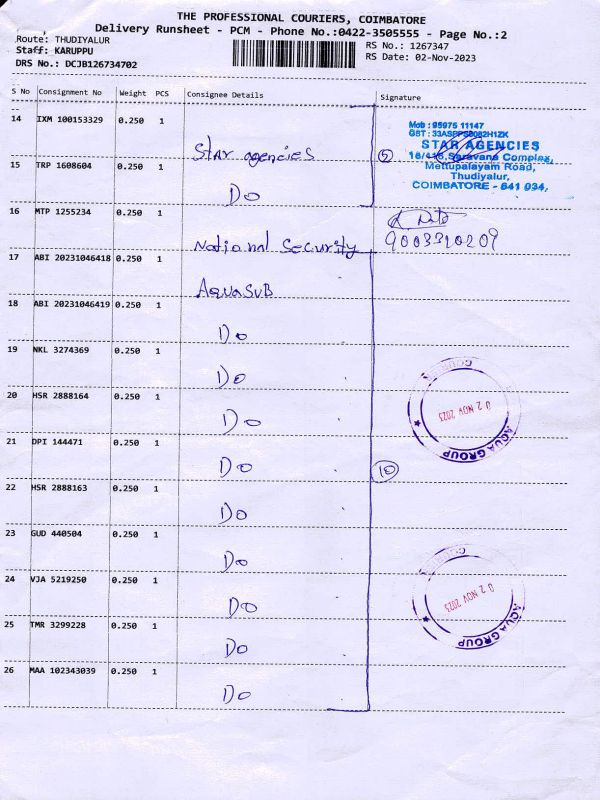 THE PROFESSIONAL COURIERS, COIMBATORE
Delivery Runsheet - PCM - Phone No.:0422-3505555 - Page No.:2
Route: THUDIYALUR
RS No.: 1267347
Staff: KARUPPU
RS Date: 02-Nov-2023
DRS No.: DCJB126734702
S No Consignment No Weight PCS Consignee Details Signature
14 IXM 100153329 0.250 1
Star agencies
Mob : 95975 11147
STAR AGENCIES
Saravana Complex,
Mettupalayam Road,
Thudiyalur,
COIMBATORE - 641 034.
5
15 TRP 1608604 0.250 1
Do
16 MTP 1255234 0.250 1
National Security
9003310209
17 ABI 20231046418 0.250 1
AquaSub
18 ABI 20231046419 0.250 1
Do
19 NKL 3274369 0.250 1
Do
20 HSR 2888164 0.250 1
Do
02 NOV 2023
AQUA GROUP
21 DPI 144471 0.250 1
Do
10
22 HSR 2888163 0.250 1
Do
23 GUD 440504 0.250 1
Do
24 VJA 5219250 0.250 1
Do
02 NOV 2023
AQUA GROUP
25 TMR 3299228 0.250 1
Do
26 MAA 102343039 0.250 1
Do